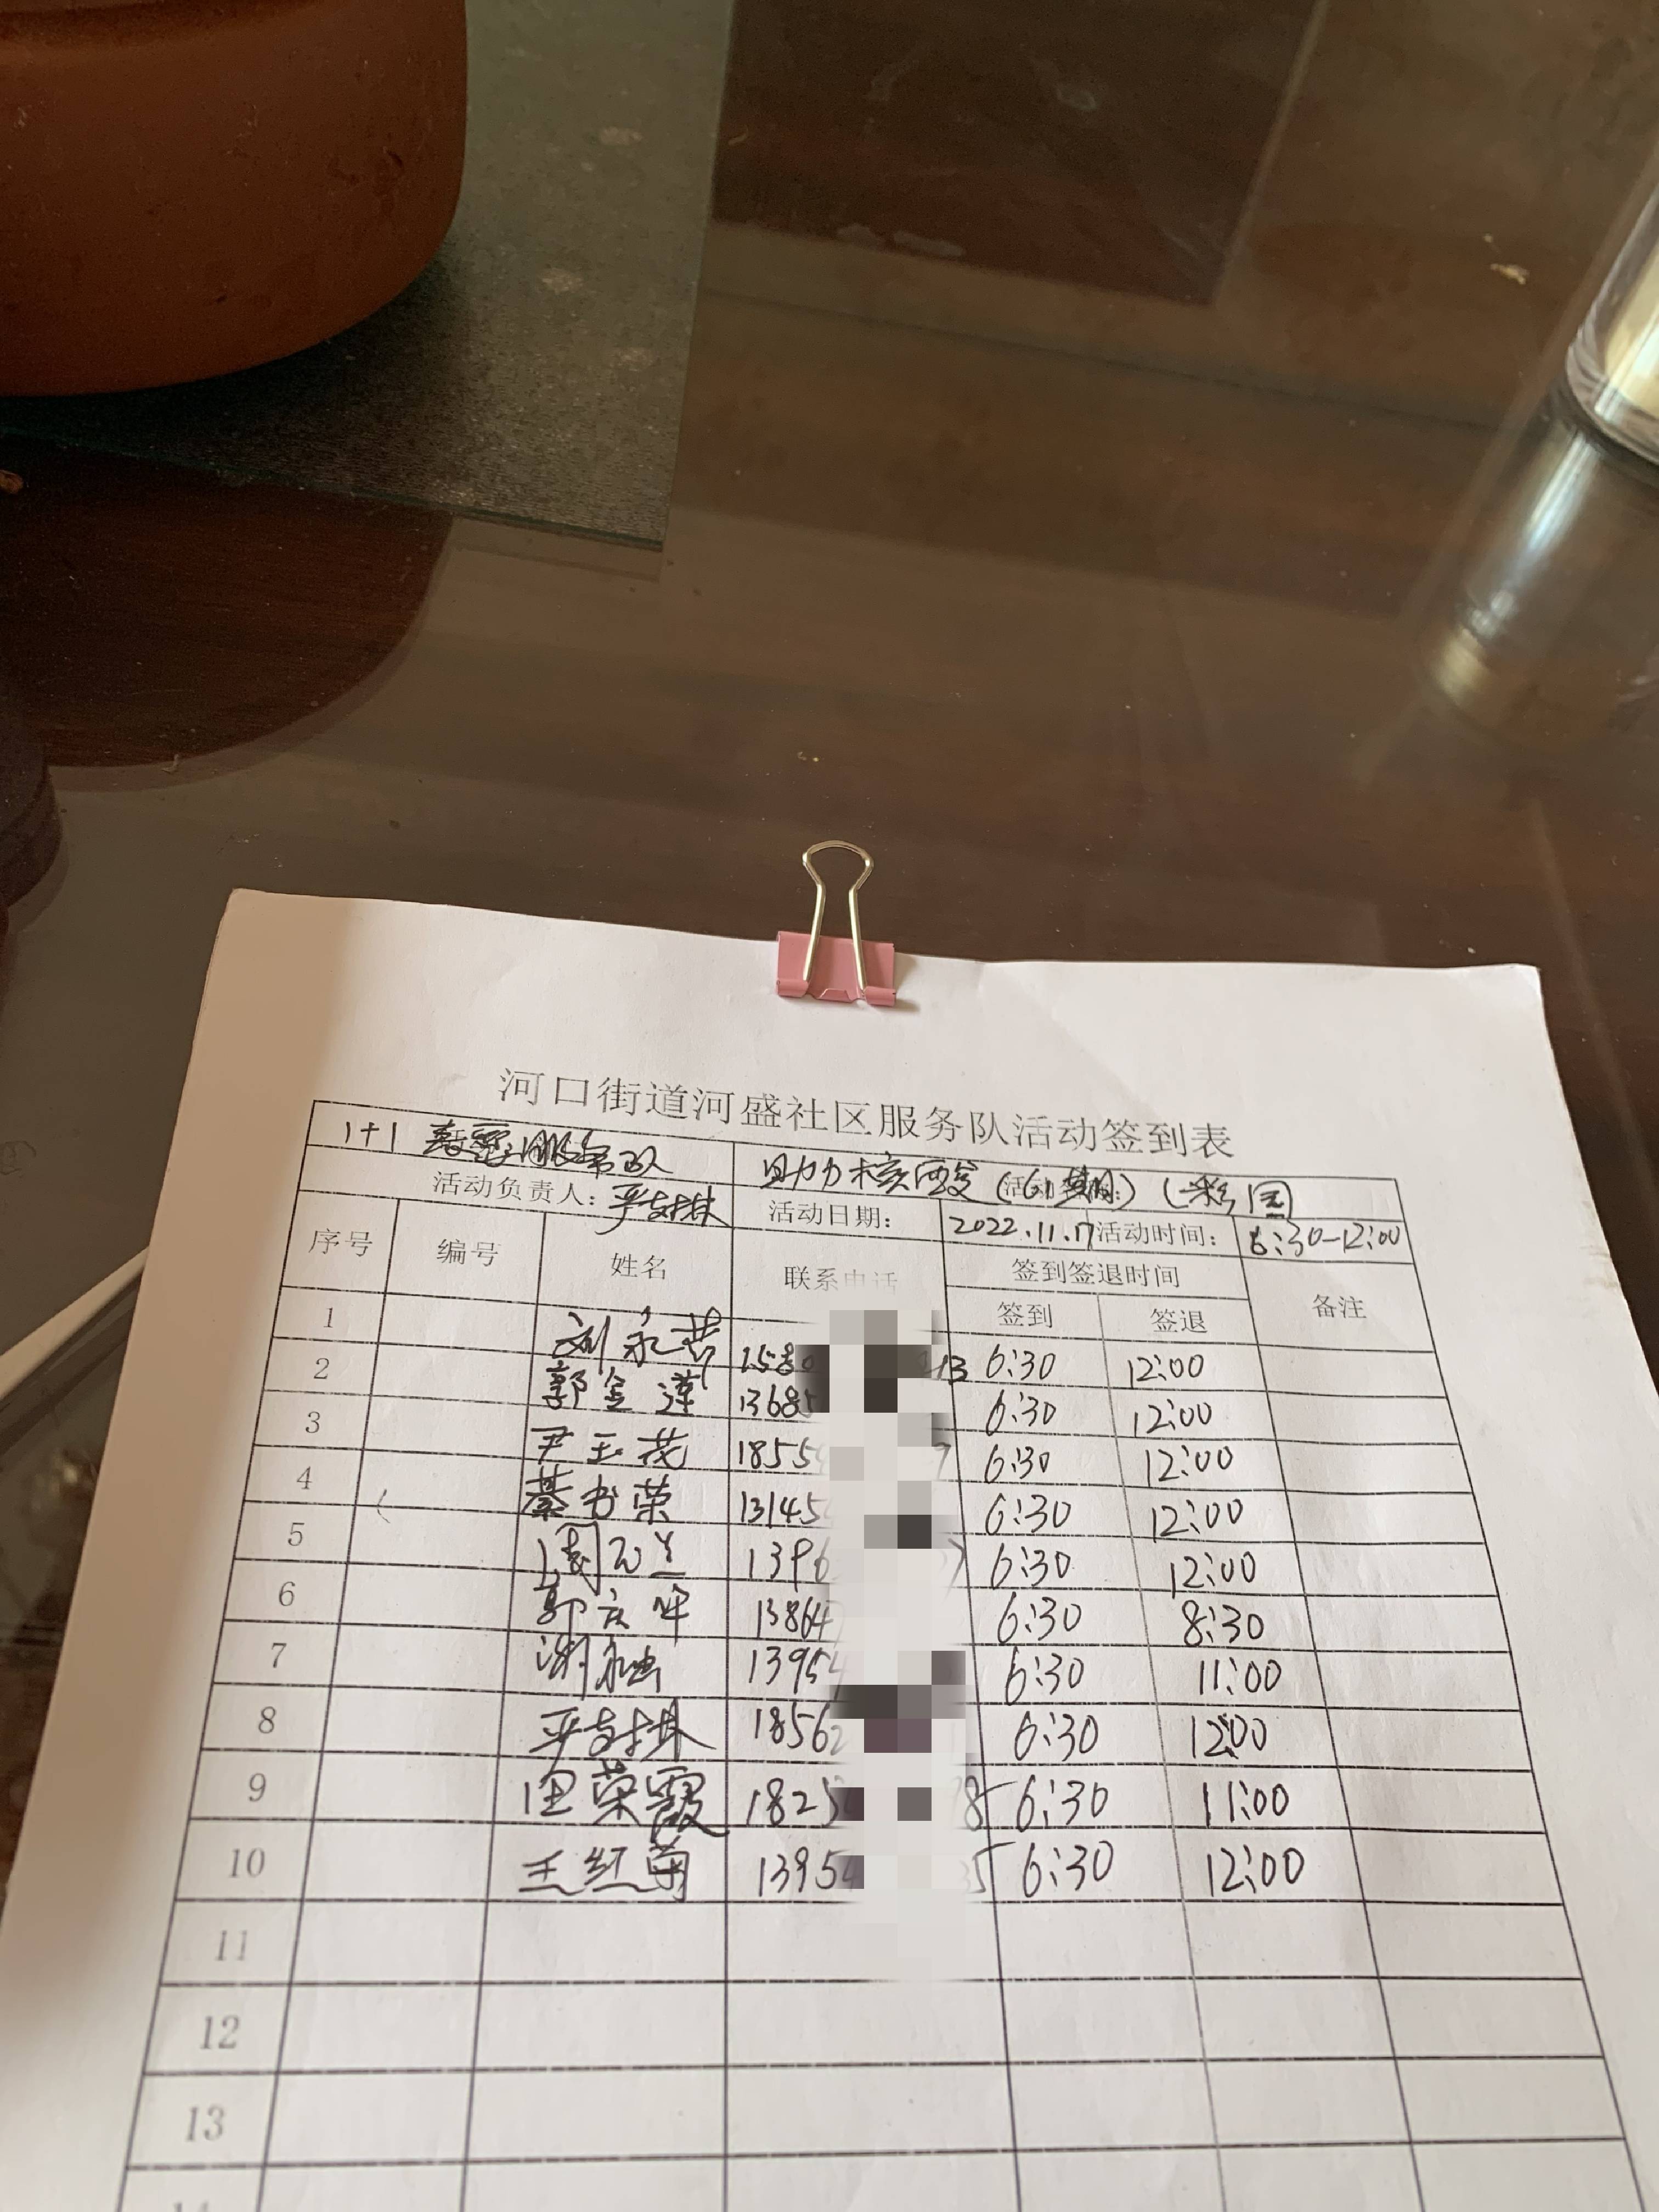 河口街道河盛社区服务队活动签到表
1+1 志愿服务队 助力核酸(61期)(彩园)
活动负责人: 活动日期: 2022.11.17 活动时间: 6:30-12:00
序号 编号 姓名 联系电话 签到签退时间 备注
签到 签退
1 刘永芸 1580 13 6:30 12:00
2 郭金莲 13685 6:30 12:00
3 尹玉花 1855 7 6:30 12:00
4 綦书荣 13145 6:30 12:00
5 周元兰 1396 6:30 12:00
6 郭庆 13864 6:30 8:30
7 1395 6:30 11:00
8 1856 6:30 12:00
9 荣霞 1825 8 6:30 11:00
10 王红菊 1395 35 6:30 12:00
11
12
13
14